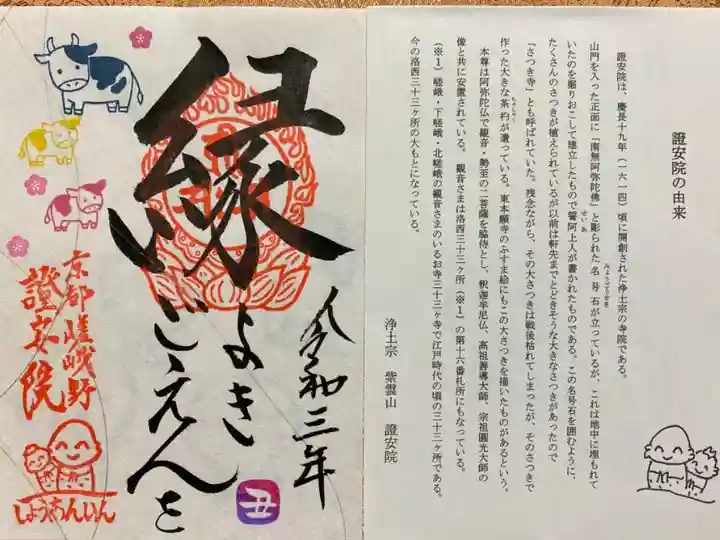 縁
よき
ごえんを
令和三年
丑
京都嵯峨野
證安院
しょうあんいん
證安院の由来
證安院は、慶長十九年(一六一四)頃に開創された浄土宗の寺院である。
山門を入った正面に「南無阿弥陀佛」と彫られた名号石が立っているが、これは地中に埋もれて
みょうごうせき
いたのを掘りおこして建立したもので誓阿上人が書かれたものである。この名号石を囲むように、
せいあ
たくさんのさつきが植えられているが以前は軒先までとどきそうな大きなさつきがあったので
「さつき寺」とも呼ばれていた。残念ながら、その大さつきは戦後枯れてしまったが、そのさつきで
作った大きな茶杓が遺っている。東本願寺のふすま絵にもこの大さつきを描いたものがあるという。
ちゃしゃく
本尊は阿弥陀仏で観音・勢至の二菩薩を脇侍とし、釈迦牟尼仏、高祖善導大師、宗祖圓光大師の
像と共に安置されている。観音さまは洛西三十三ヶ所(※1)の第十六番札所にもなっている。
(※1)嵯峨・下嵯峨・北嵯峨の観音さまのいるお寺三十三ヶ寺で江戸時代の頃の三十三ヶ所である。
今の洛西三十三ヶ所の大もとになっている。
浄土宗 紫雲山 證安院